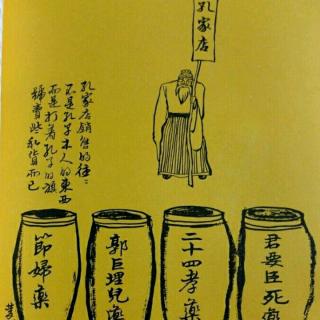 孔家店
孔家店銷售的往〻
不是孔子本人的東西
而是打着孔子的旗
號賣些私貨而已
君要臣死藥
二十四孝藥
郭巨埋兒藥
節婦藥